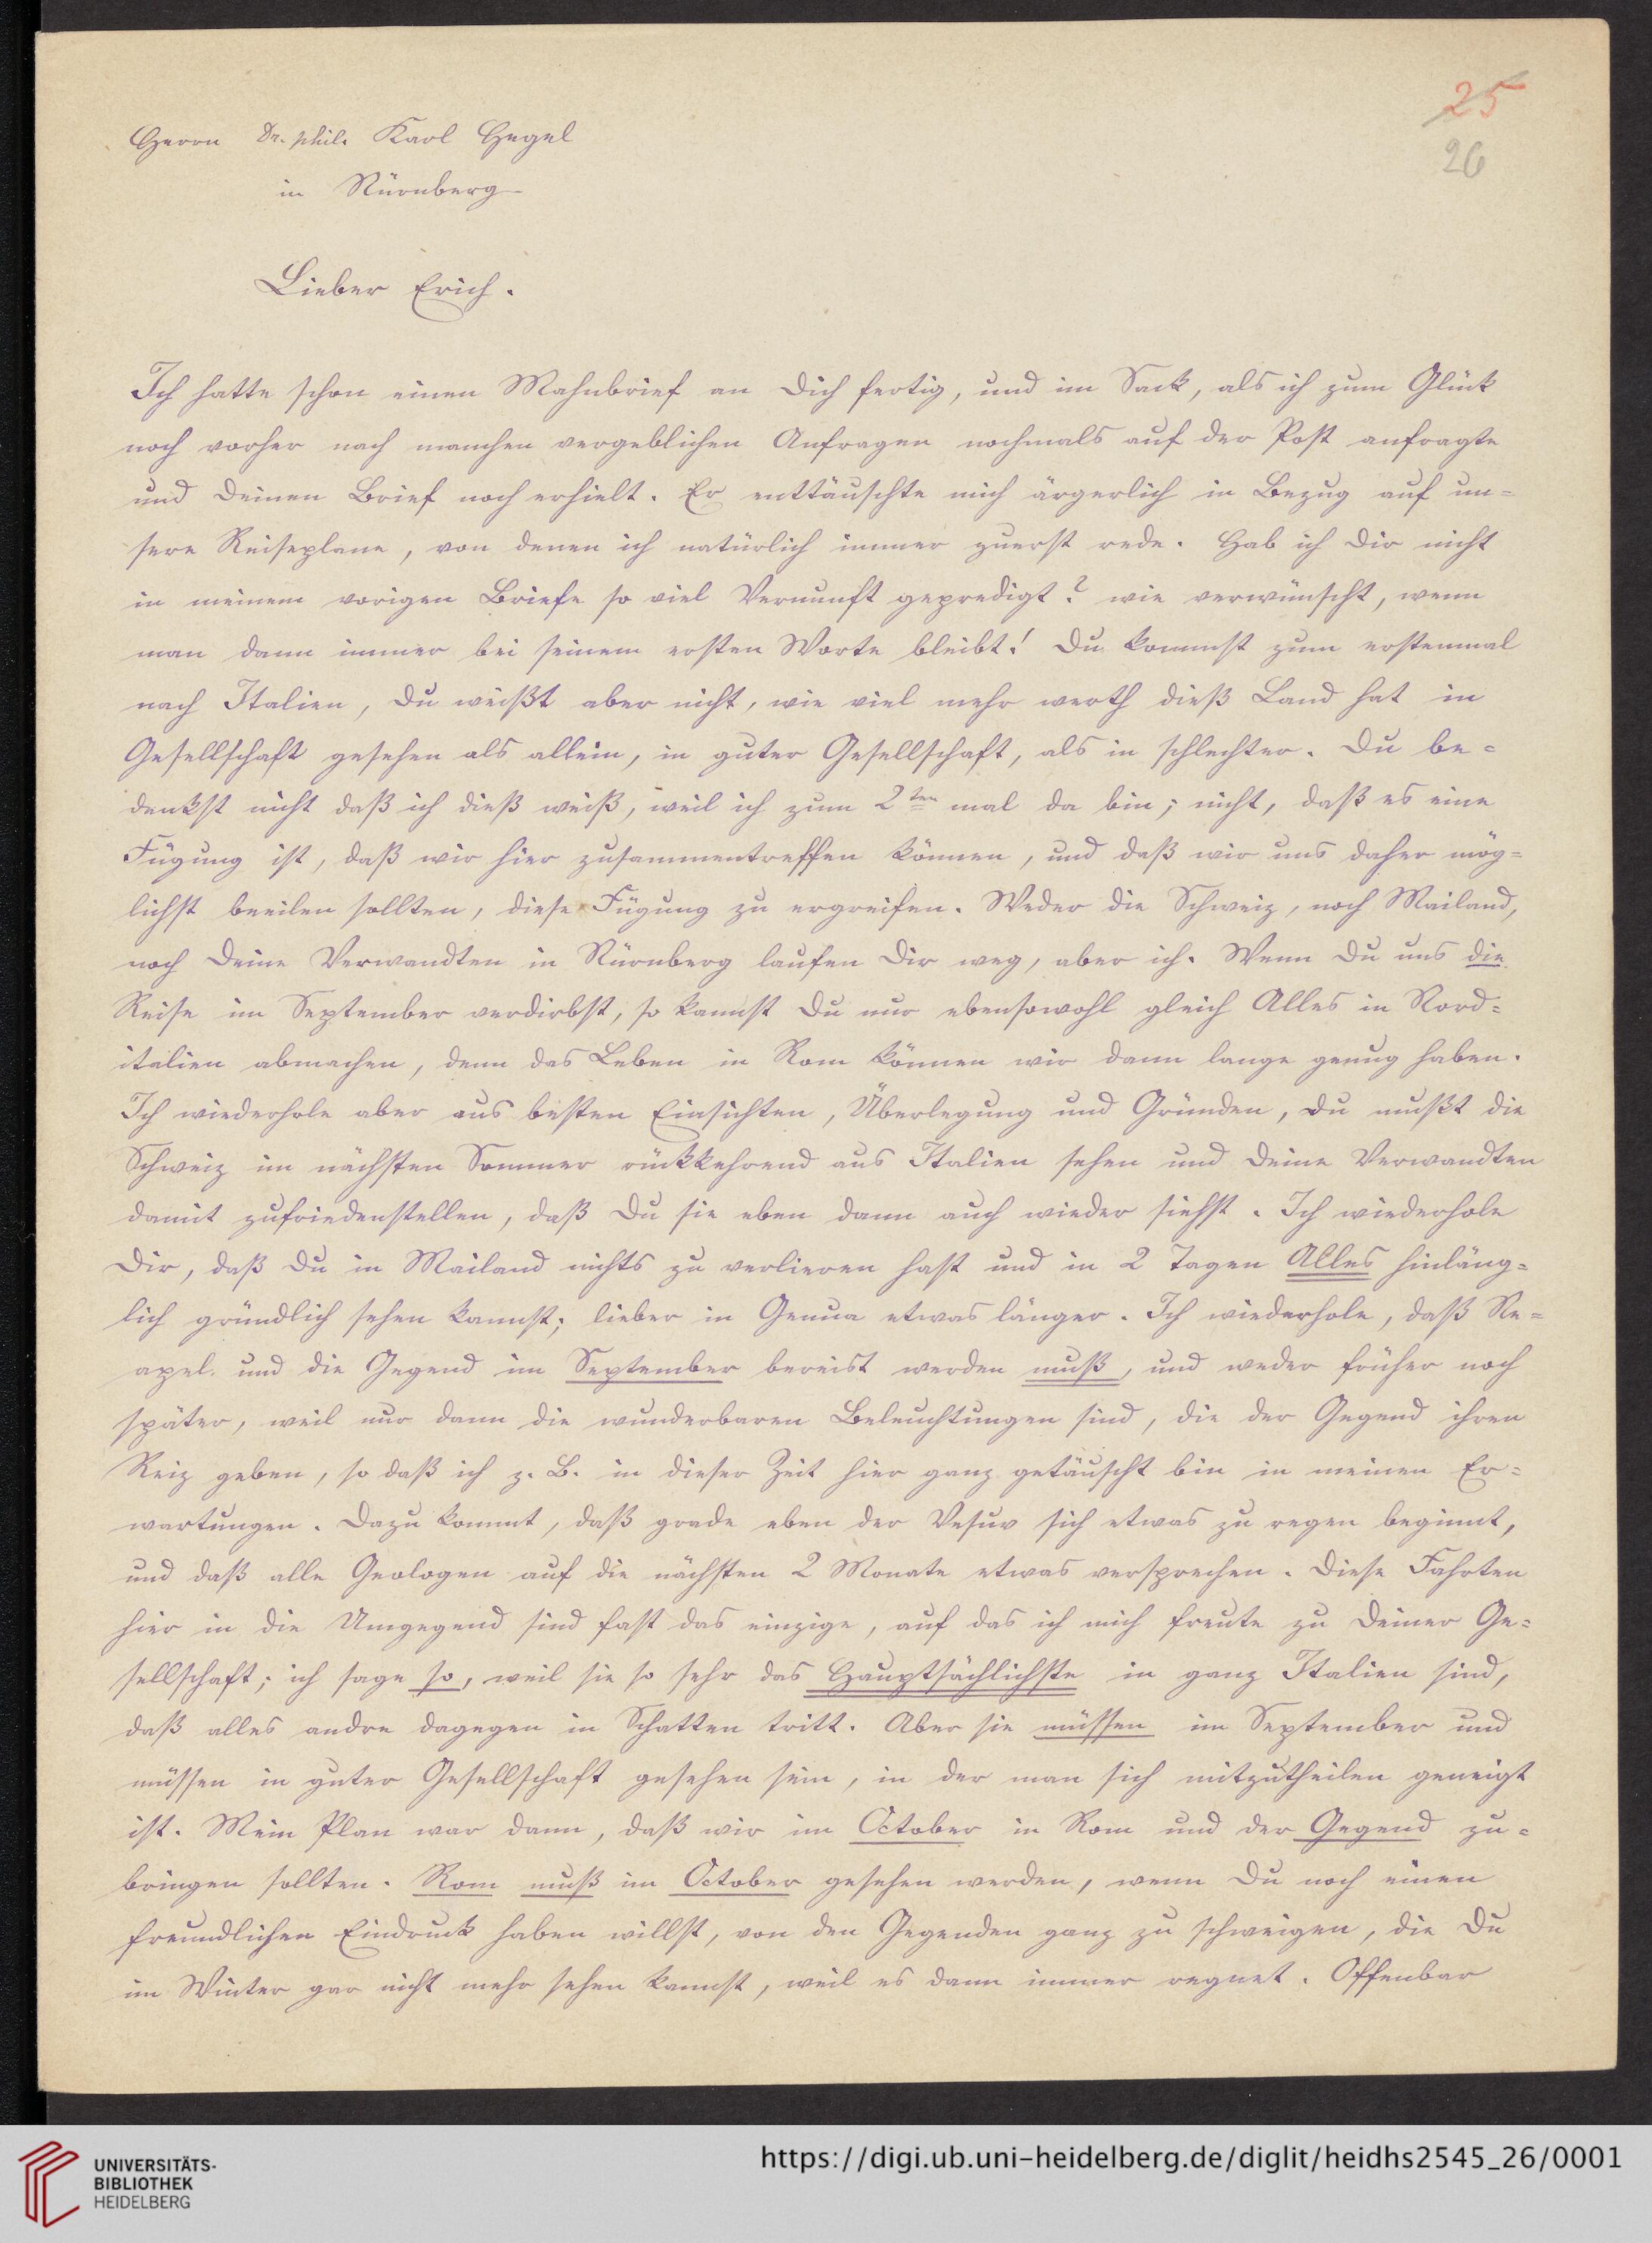 25
26
Herrn Dr. phil. Karl Hegel
in Nürnberg
Lieber Erich.
Ich hatte schon einen Mahnbrief an Dich fertig, und im Sack, als ich zum Glück
noch vorher nach manchen vergeblichen Anfragen nochmals auf der Post anfragte
und Deinen Brief noch erhielt. Er enttäuschte mich ärgerlich in Bezug auf un=
sere Reiseplane, von denen ich natürlich immer zuerst rede. Hab ich Dir nicht
in meinem vorigen Briefe so viel Vernunft gepredigt? wie verwünscht, wenn
man dann immer bei seinem ersten Worte bleibt! Du kommst zum erstenmal
nach Italien, Du weißt aber nicht, wie viel mehr werth dieß Land hat in
Gesellschaft gesehen als allein, in guter Gesellschaft, als in schlechter. Du be=
denkst nicht daß ich dieß weiß, weil ich zum 2ten mal da bin; nicht, daß es eine
Fügung ist, daß wir hier zusammentreffen können, und daß wir uns daher mög=
lichst beeilen sollten, diese Fügung zu ergreifen. Weder die Schweiz, noch Mailand,
noch Deine Verwandten in Nürnberg laufen Dir weg, aber ich. Wenn Du uns die
Reise im September verdirbst, so kannst Du nur ebensowohl gleich Alles in Nord=
italien abmachen, denn das Leben in Rom können wir dann lange genug haben.
Ich wiederhole aber aus besten Einsichten, Überlegung und Gründen, Du mußt die
Schweiz im nächsten Sommer rückkehrend aus Italien sehen und Deine Verwandten
damit zufriedenstellen, daß Du sie eben dann auch wieder siehst. Ich wiederhole
Dir, daß Du in Mailand nichts zu verlieren hast und in 2 Tagen Alles hinläng=
lich gründlich sehen kannst; lieber in Genua etwas länger. Ich wiederhole, daß Ne=
apel und die Gegend im September bereist werden muß, und weder früher noch
später, weil nur dann die wunderbaren Beleuchtungen sind, die der Gegend ihren
Reiz geben, so daß ich z. B. in dieser Zeit hier ganz getäuscht bin in meinen Er=
wartungen. Dazu kommt, daß grade eben der Vesuv sich etwas zu regen beginnt,
und daß alle Geologen auf die nächsten 2 Monate etwas versprechen. Diese Fahrten
hier in die Umgegend sind fast das einzige, auf das ich mich freute zu Deiner Ge=
sellschaft; ich sage so, weil sie so sehr das Hauptsächlichste in ganz Italien sind,
daß alles andre dagegen in Schatten tritt. Aber sie müssen im September und
müssen in guter Gesellschaft gesehen sein, in der man sich mitzutheilen geneigt
ist. Mein Plan war dann, daß wir im October in Rom und der Gegend zu=
bringen sollten. Rom muß im October gesehen werden, wenn Du noch einen
freundlichen Eindruck haben willst, von den Gegenden ganz zu schweigen, die Du
im Winter gar nicht mehr sehen kannst, weil es dann immer regnet. Offenbar
UNIVERSITÄTS-
BIBLIOTHEK
HEIDELBERG
https://digi.ub.uni-heidelberg.de/diglit/heidhs2545_26/0001